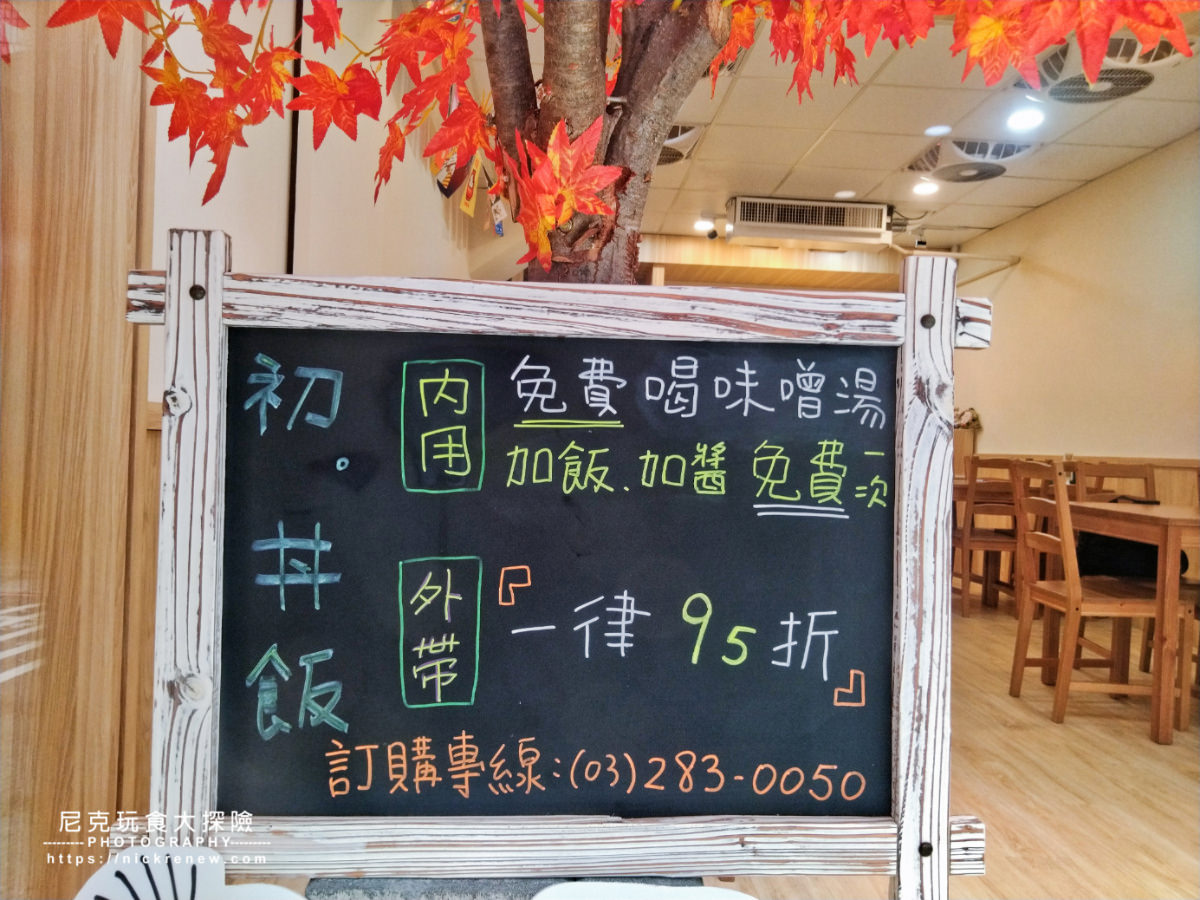 初・丼飯
内用
免費喝味噌湯
加飯、加醬免費一次
外帶
『一律95折』
訂購專線:(03)283-0050
尼克玩食大探險
---------PHOTOGRAPHY---------
https://nickrenew.com